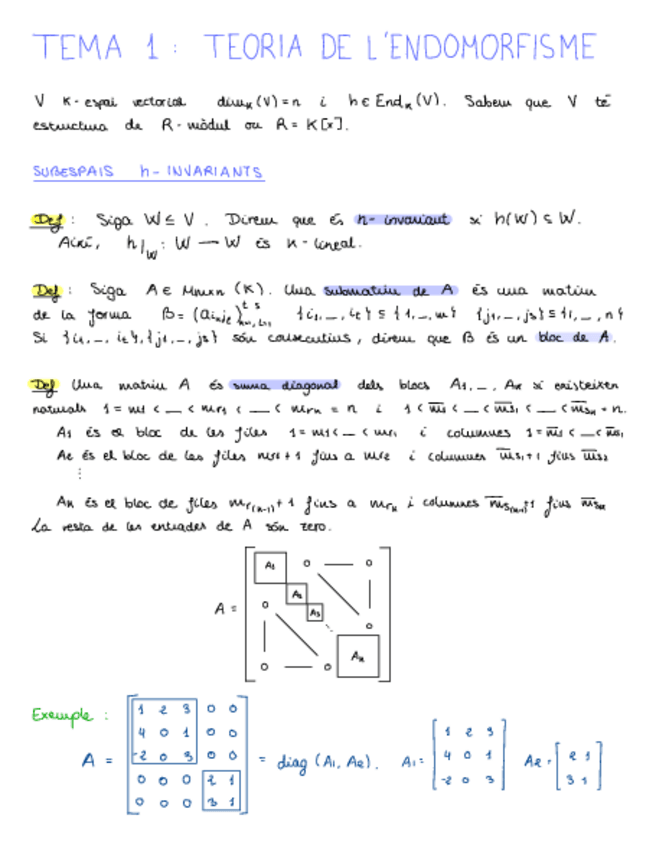 TEMA 1 : TEORIA DE L'ENDOMORFISME
V K-espai vectorial dimₖ(V)=n i h∈Endₖ(V). Sabem que V té
estructura de R-mòdul on R = K[x].
SUBESPAIS h-INVARIANTS
Def : Siga W ≤ V. Direm que és h-invariant si h(W) ⊆ W.
Així, h/W : W — W és K-lineal.
Def : Siga A ∈ Mmxn (K). Una submatriu de A és una matriu
de la forma B = (a {i1, _, it} ⊆ {1, _, m} {j1, _, js} ⊆ {1, _, n}
Si {i1, _, it}, {j1, _, js} són consecutius, direm que B és un bloc de A.
Def Una matriu A és suma diagonal dels blocs A1, _, Ak si existeixen
naturals 1 = m1 < _ < mr1 < _ < mrk = n i 1 < m̅1 < _ < m̅s1 < _ < m̅sk = n.
A1 és el bloc de les files 1 = m1 < _ < mr1 i columnes 1 = m̅1 < _ < m̅s1
A2 és el bloc de les files mr1 + 1 fins a mr2 i columnes m̅s1 + 1 fins m̅s2
⋮
Ak és el bloc de files mr(k-1) + 1 fins a mrk i columnes m̅s(k-1)+1 fins m̅sk
La resta de les entrades de A són zero.
A1 0 — 0
A2
A = 0 A3
0
Ak
0 — 0
Exemple :
1 2 3 0 0
4 0 1 0 0
-2 0 3 0 0
0 0 0 2 1
0 0 0 3 1
A = = diag (A1, A2). A1 =
1 2 3
4 0 1
-2 0 3
A2 =
2 1
3 1